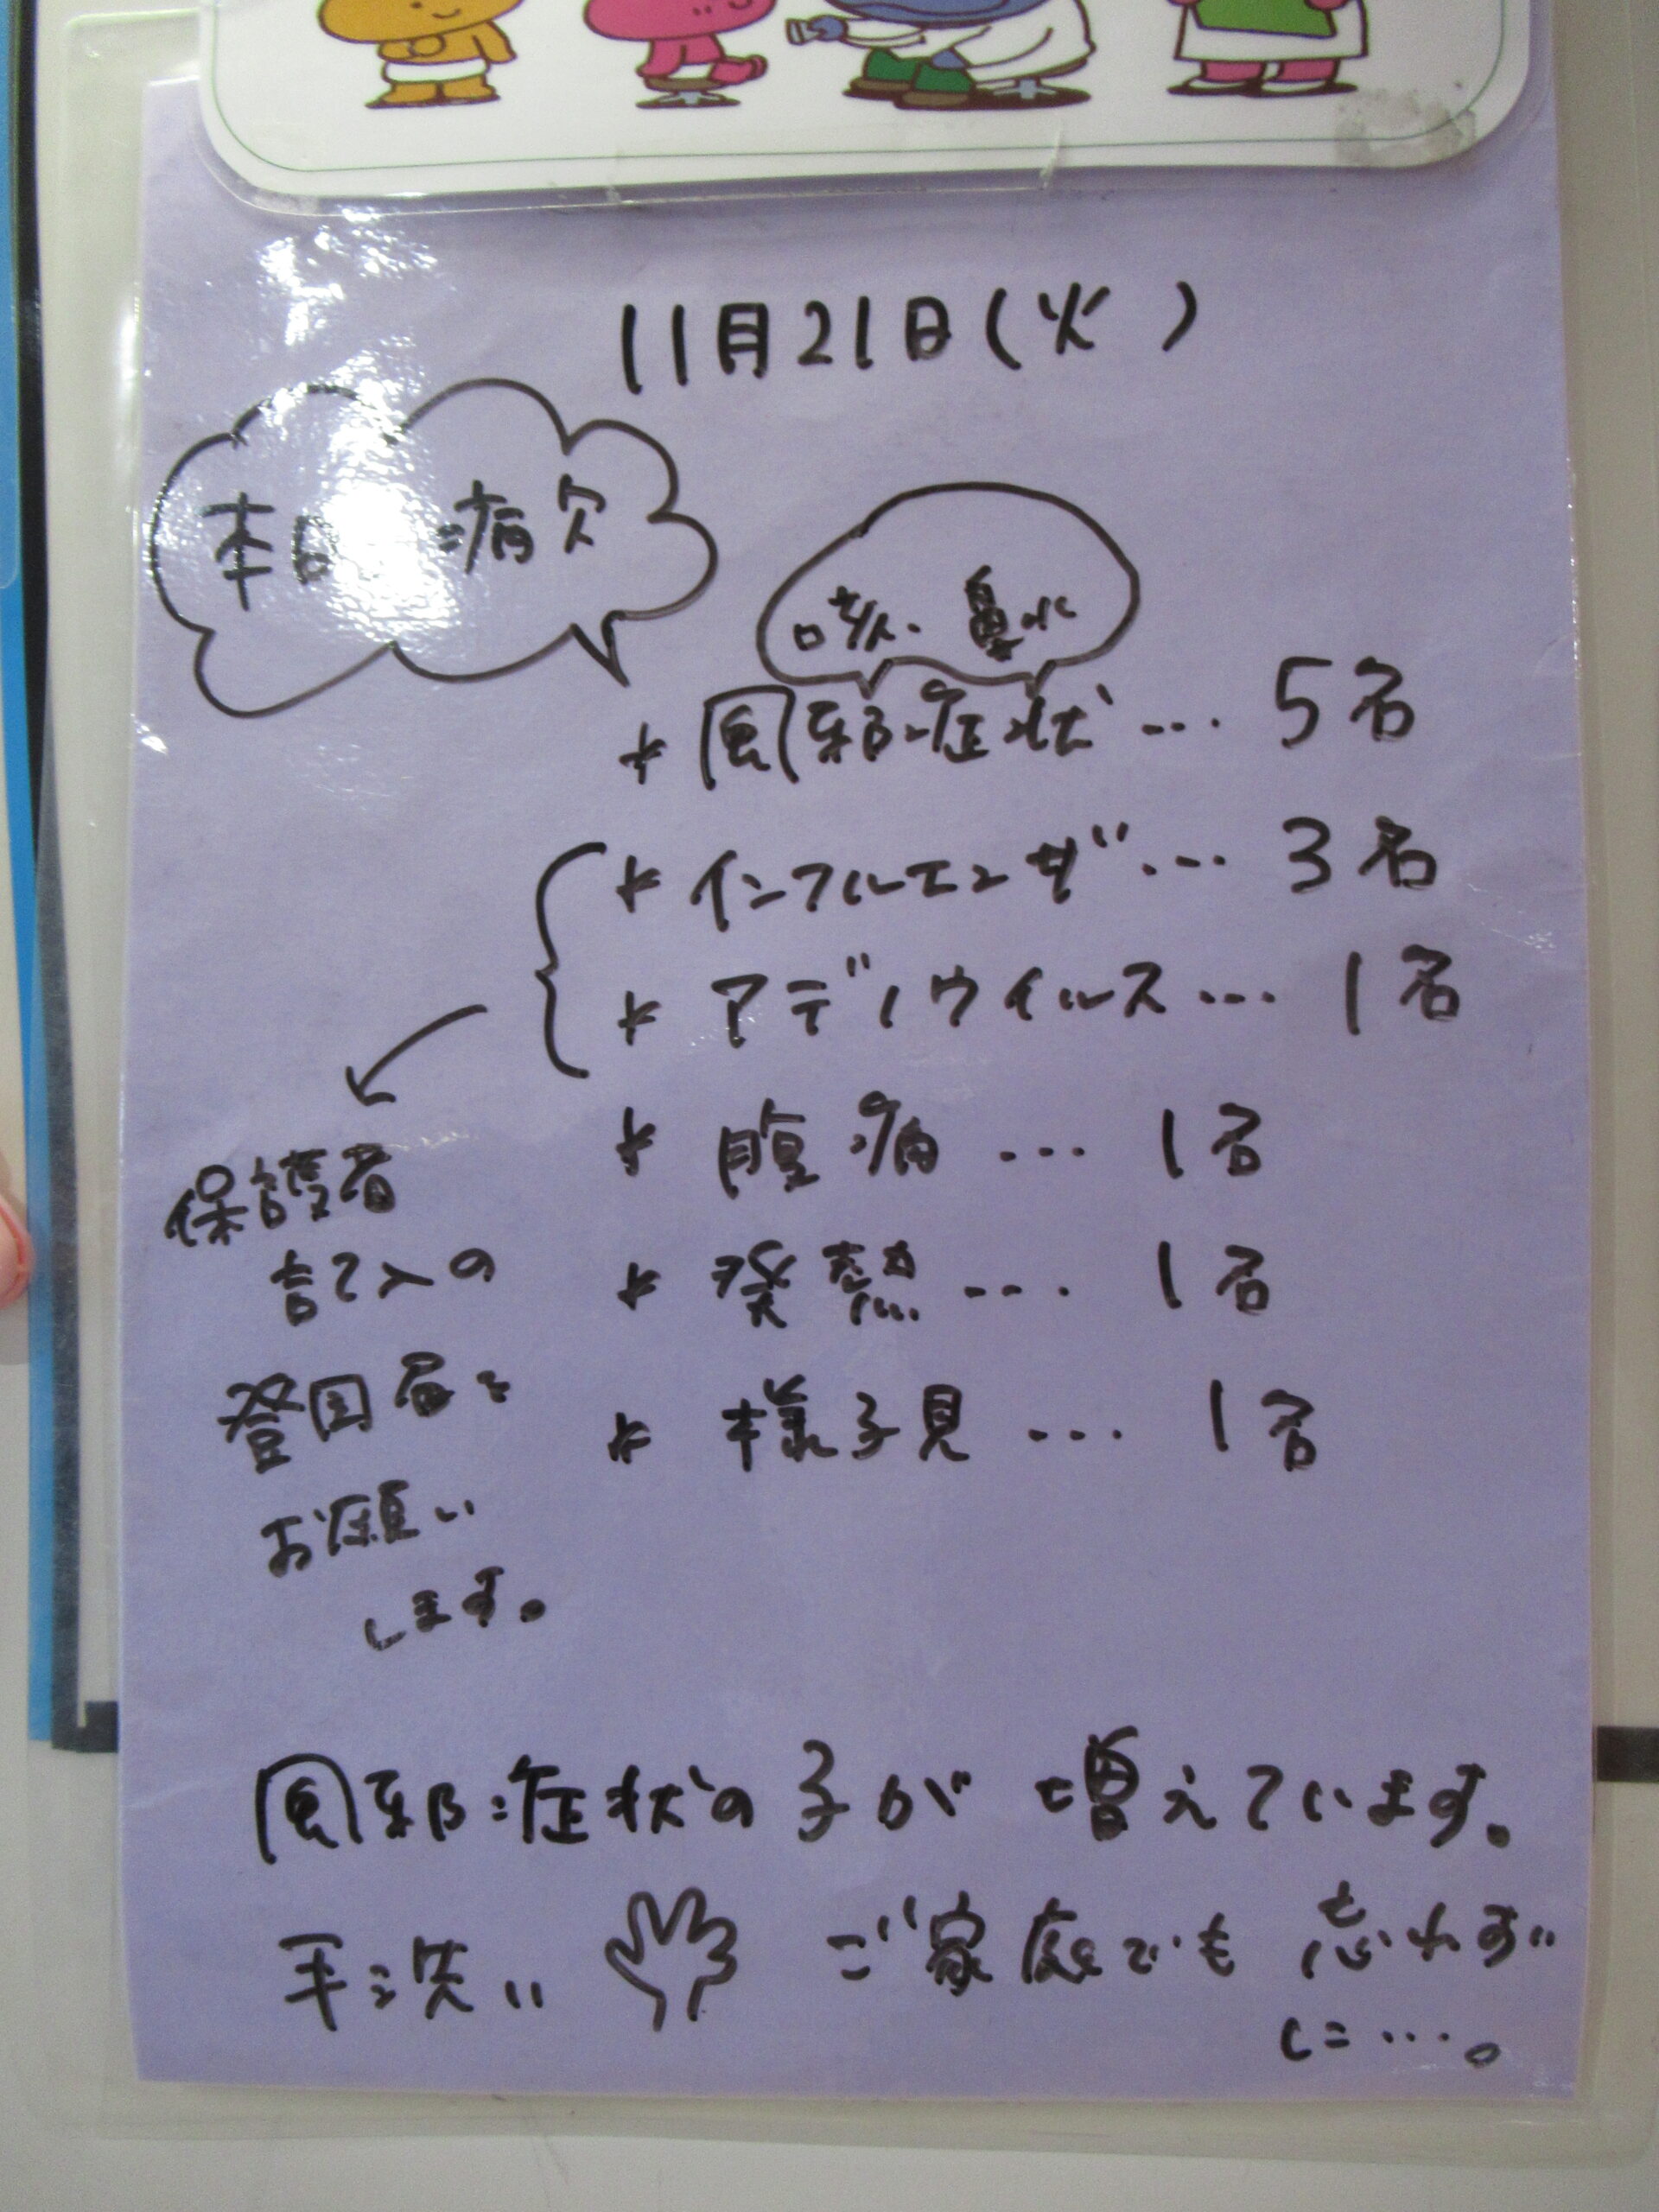 11月21日(火)
本日 病欠
咳、鼻水
* 風邪症状… 5名
* インフルエンザ… 3名
* アデノウイルス… 1名
* 腹痛… 1名
* 発熱… 1名
* 様子見… 1名
保護者
記入の
登園届を
お願い
します。
風邪症状の子が 増えています。
手洗い ご家庭でも 忘れず
に…。